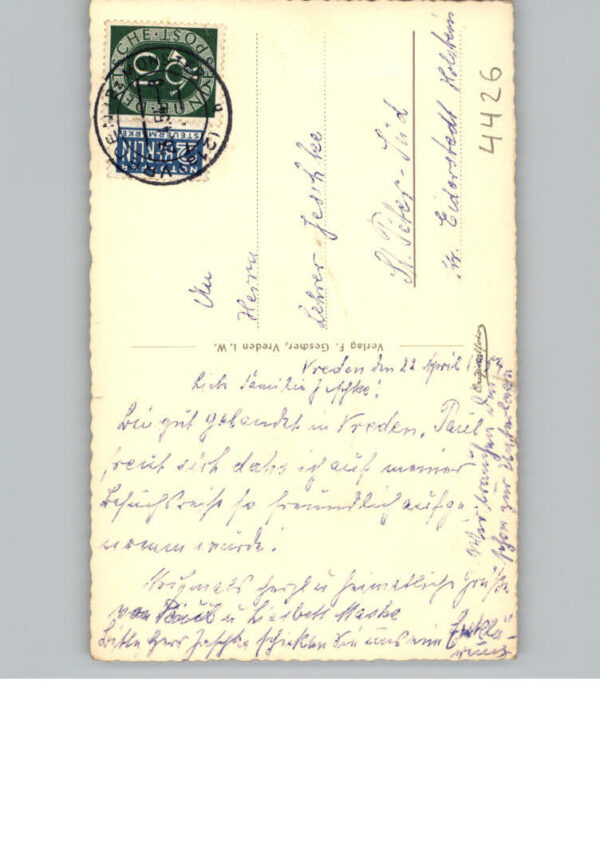 DEUTSCHE BUNDESPOST
10
NOTOPFER
2 BERLIN
STEUERMARKE
VREDEN
An
Herrn
Lehrer Jeschke
St. Peter-Süd
Kr. Eiderstedt Holstein
4426
Verlag F. Gescher, Vreden i. W.
Vreden den 22 April
Liebe Familie Jeschke!
Bin gut gelandet in Vreden. Paul
freut sich dahs ich auf meiner
Besuchsreise so freundlich aufge
nomm wurde!
Nochmals herzl u heimatliche Grüße
von Paul u Liesbett Maske
Bitte Herr Jeschke schickten Sie uns ein Erklä-
rung